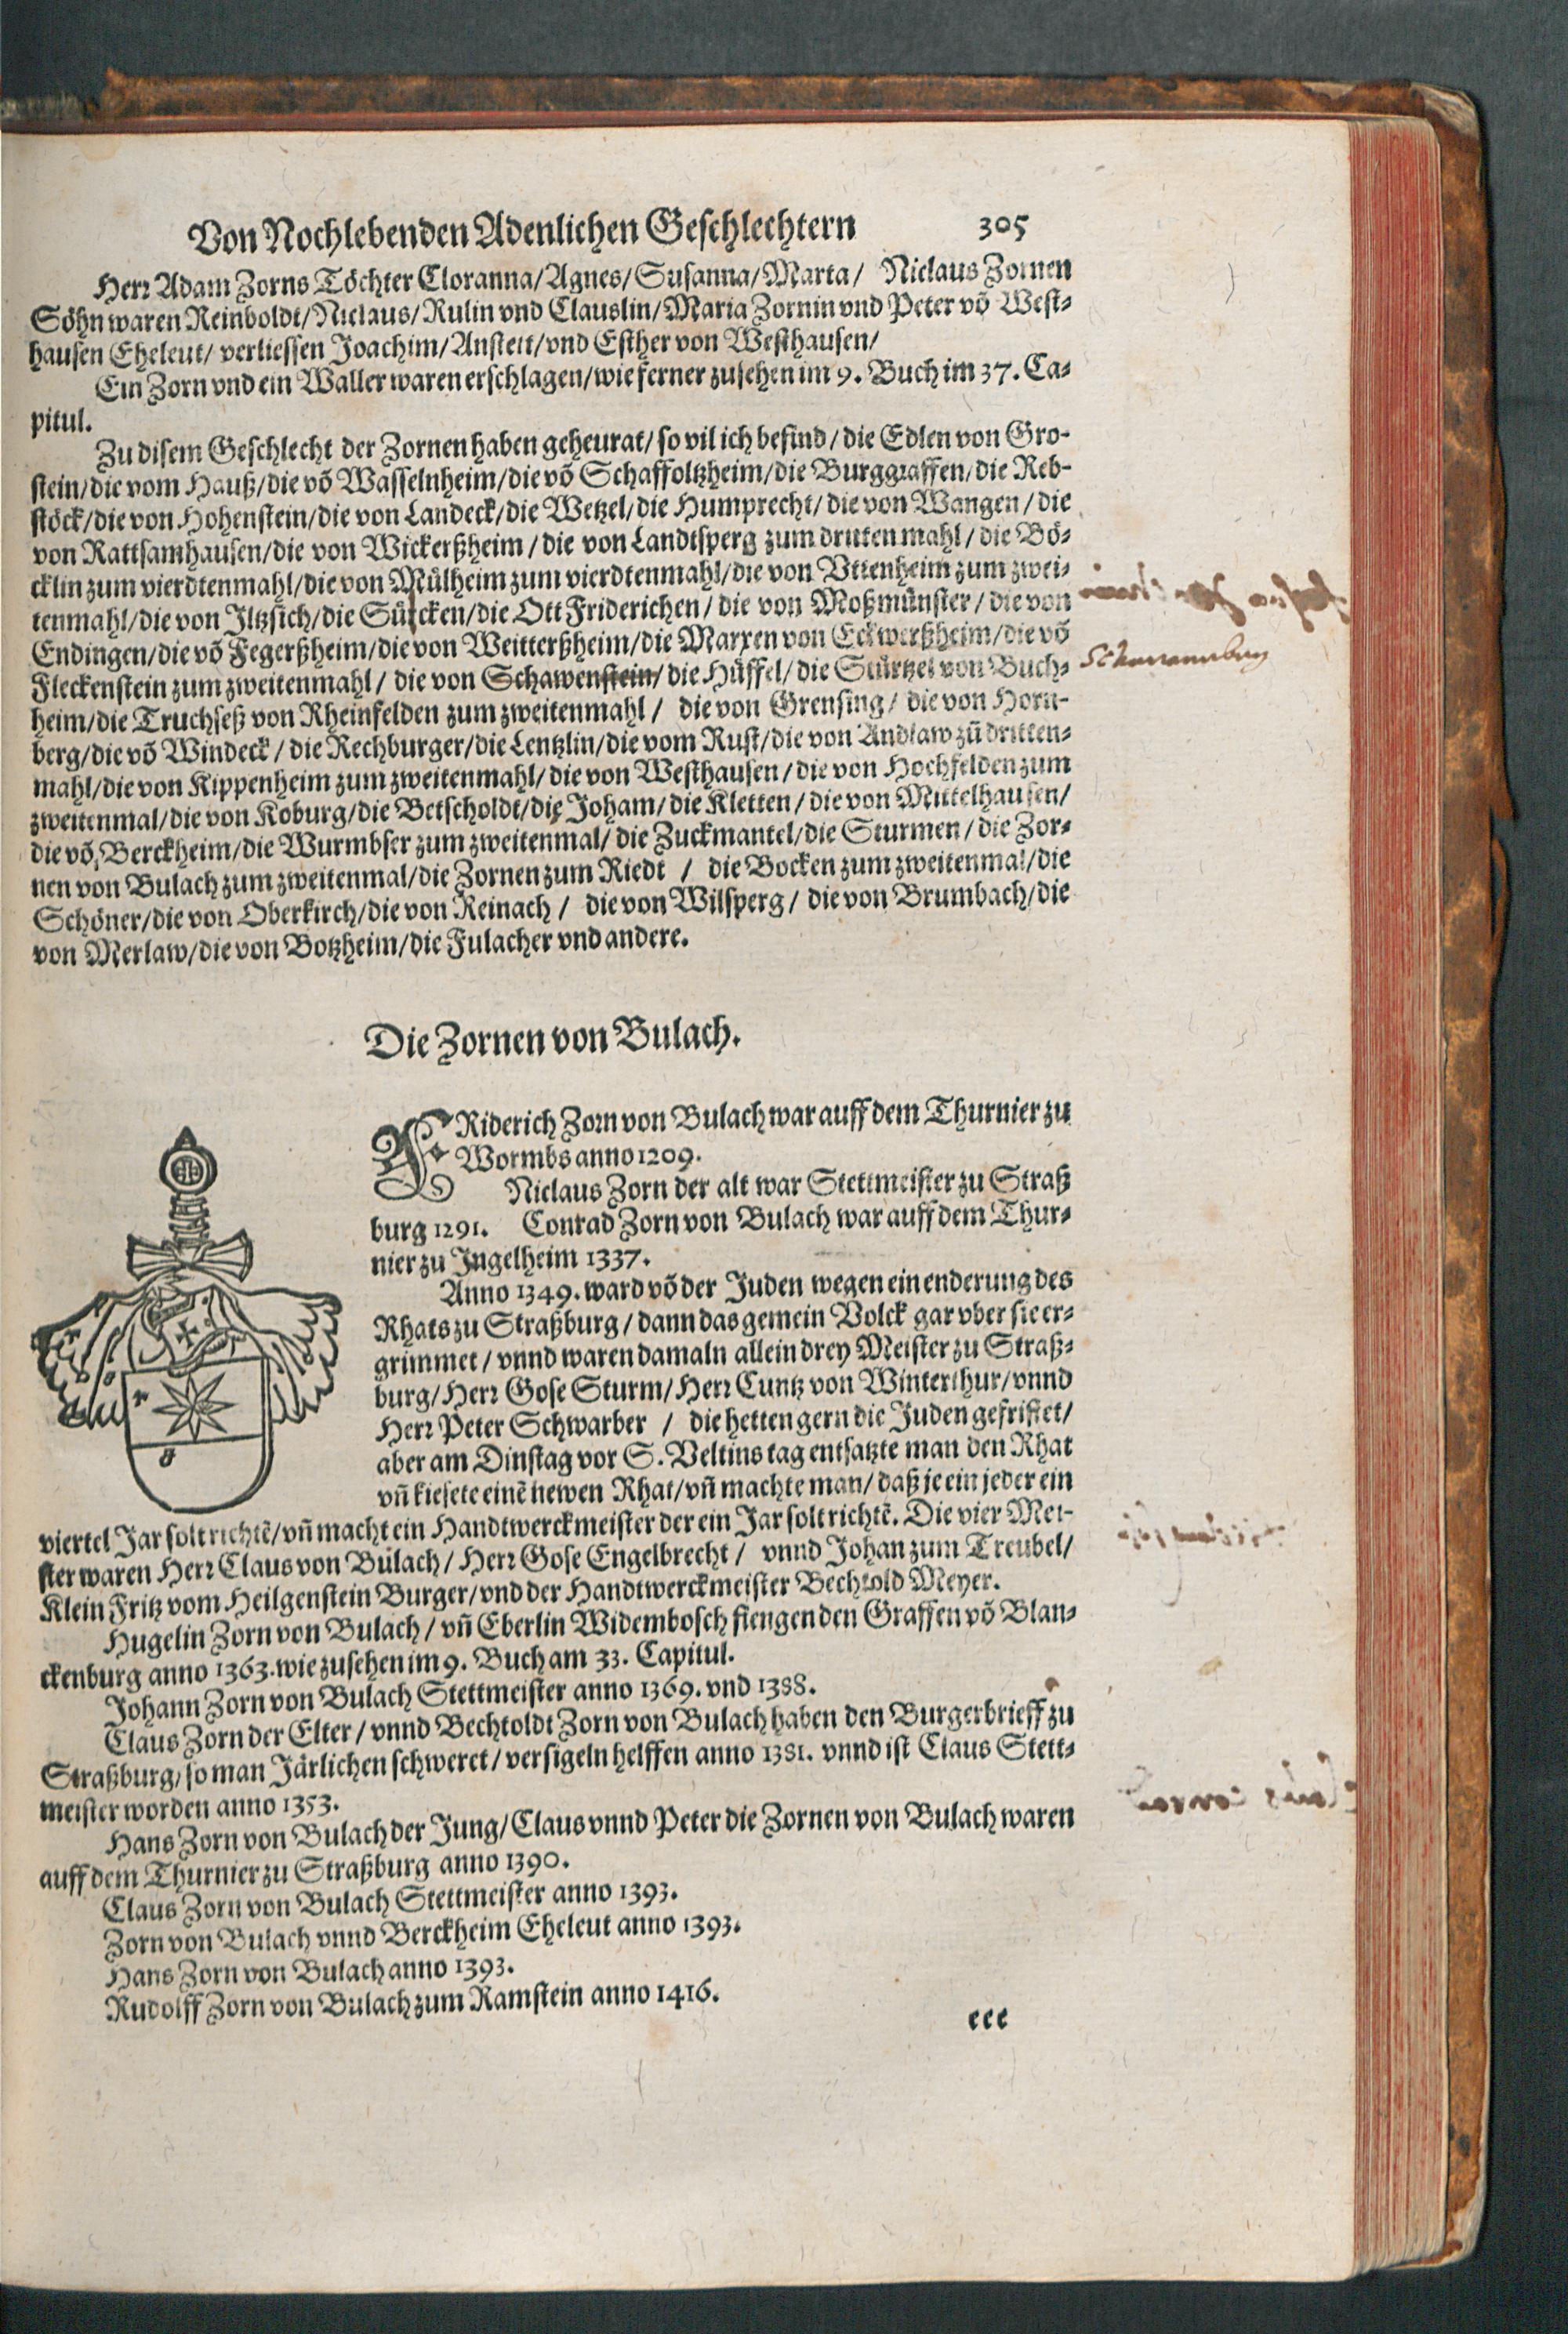 Von Nochlebenden Adenlichen Geschlechtern 305
Herr Adam Zorns Töchter Cloranna/Agnes/Susanna/Marta/ Niclaus Zornen
Söhn waren Reinboldt/Niclaus/Rulin vnd Clauslin/Maria Zornin vnd Peter võ West-
hausen Eheleut/ verliessen Joachim/Anstett/vnd Esther von Westhausen/
Ein Zorn vnd ein Waller waren erschlagen/wie ferner zusehen im 9. Buch im 37. Ca-
pitul.
Zu disem Geschlecht der Zornen haben geheurat/ so vil ich befind/die Edlen von Gro-
stein/die vom Hauß/die võ Wasselnheim/die võ Schaffoltzheim/die Burggraffen/die Reb-
stöck/die von Hohenstein/die von Landeck/die Wetzel/die Humprecht/die von Wangen/die
von Rattsamhausen/die von Wickerßheim/die von Landtsperg zum dritten mahl/die Bö-
cklin zum vierdtenmahl/die von Mülheim zum vierdtenmahl/die von Vttenheim zum zwei-
tenmahl/die von Jltzsich/die Sürcken/die Ott Friderichen/die von Moßmünster/die von
Endingen/die võ Fegerßheim/die von Weitterßheim/die Marxen von Eckwerßheim/die võ
Fleckenstein zum zweitenmahl/ die von Schawenstein/ die Hüffel/ die Stürtzel von Buch-
heim/die Truchseß von Rheinfelden zum zweitenmahl/ die von Grensing/ die von Horn-
berg/die võ Windeck/die Rechburger/die Lentzlin/die vom Rust/die von Andlaw zũ dritten-
mahl/die von Kippenheim zum zweitenmahl/die von Westhausen/die von Hochfelden zum
zweitenmal/die von Koburg/die Betscholdt/die Joham/die Kletten/die von Mittelhausen/
die võ Berckheim/die Wurmbser zum zweitenmal/die Zuckmantel/die Sturmen/die Zor-
nen von Bulach zum zweitenmal/die Zornen zum Riedt/ die Bocken zum zweitenmal/die
Schöner/die von Oberkirch/die von Reinach/ die von Wilsperg/ die von Brumbach/die
von Merlaw/die von Botzheim/die Fulacher vnd andere.
Schauenburg
Die Zornen von Bulach.
FRiderich Zorn von Bulach war auff dem Thurnier zu
Wormbs anno 1209.
Niclaus Zorn der alt war Stettmeister zu Straß
burg 1291. Conrad Zorn von Bulach war auff dem Thur-
nier zu Jngelheim 1337.
Anno 1349. ward võ der Juden wegen ein enderung des
Rhats zu Straßburg/dann das gemein Volck gar vber sie er-
grimmet/vnnd waren damaln allein drey Meister zu Straß-
burg/Herr Gose Sturm/Herr Cuntz von Winterthur/vnnd
Herr Peter Schwarber/ die hetten gern die Juden gefristet/
aber am Dinstag vor S. Veltins tag entsatzte man den Rhat
vñ kiesete einẽ newen Rhat/vñ machte man/daß je ein jeder ein
viertel Jar solt richtẽ/vñ macht ein Handtwerckmeister der ein Jar solt richtẽ. Die vier Mei-
ster waren Herr Claus von Bulach/Herr Gose Engelbrecht/ vnnd Johan zum Treubel/
Klein Fritz vom Heilgenstein Burger/vnd der Handtwerckmeister Bechtold Meyer.
Hugelin Zorn von Bulach/vñ Eberlin Widembosch fiengen den Graffen võ Blan-
ckenburg anno 1363. wie zusehen im 9. Buch am 33. Capitul.
Johann Zorn von Bulach Stettmeister anno 1369. vnd 1388.
Claus Zorn der Elter/vnnd Bechtoldt Zorn von Bulach haben den Burgerbrieff zu
Straßburg/so man Järlichen schweret/versigeln helffen anno 1381. vnnd ist Claus Stett-
meister worden anno 1353.
Hans Zorn von Bulach der Jung/Claus vnnd Peter die Zornen von Bulach waren
auff dem Thurnier zu Straßburg anno 1390.
Claus Zorn von Bulach Stettmeister anno 1393.
Zorn von Bulach vnnd Berckheim Eheleut anno 1393.
Hans Zorn von Bulach anno 1393.
Rudolff Zorn von Bulach zum Ramstein anno 1416.
eee